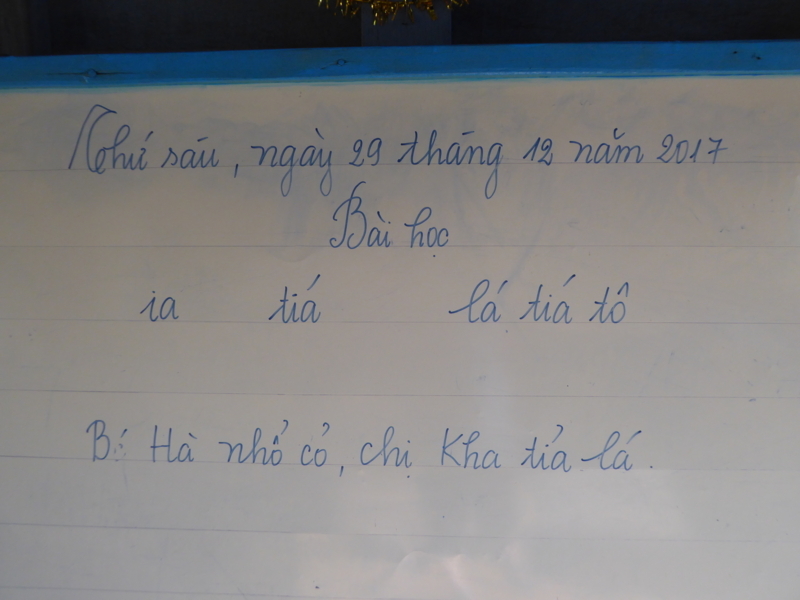 Thứ sáu, ngày 29 tháng 12 năm 2017
Bài học
ia tiá lá tiá tô
Bé Hà nhổ cỏ, chị Kha tỉa lá.